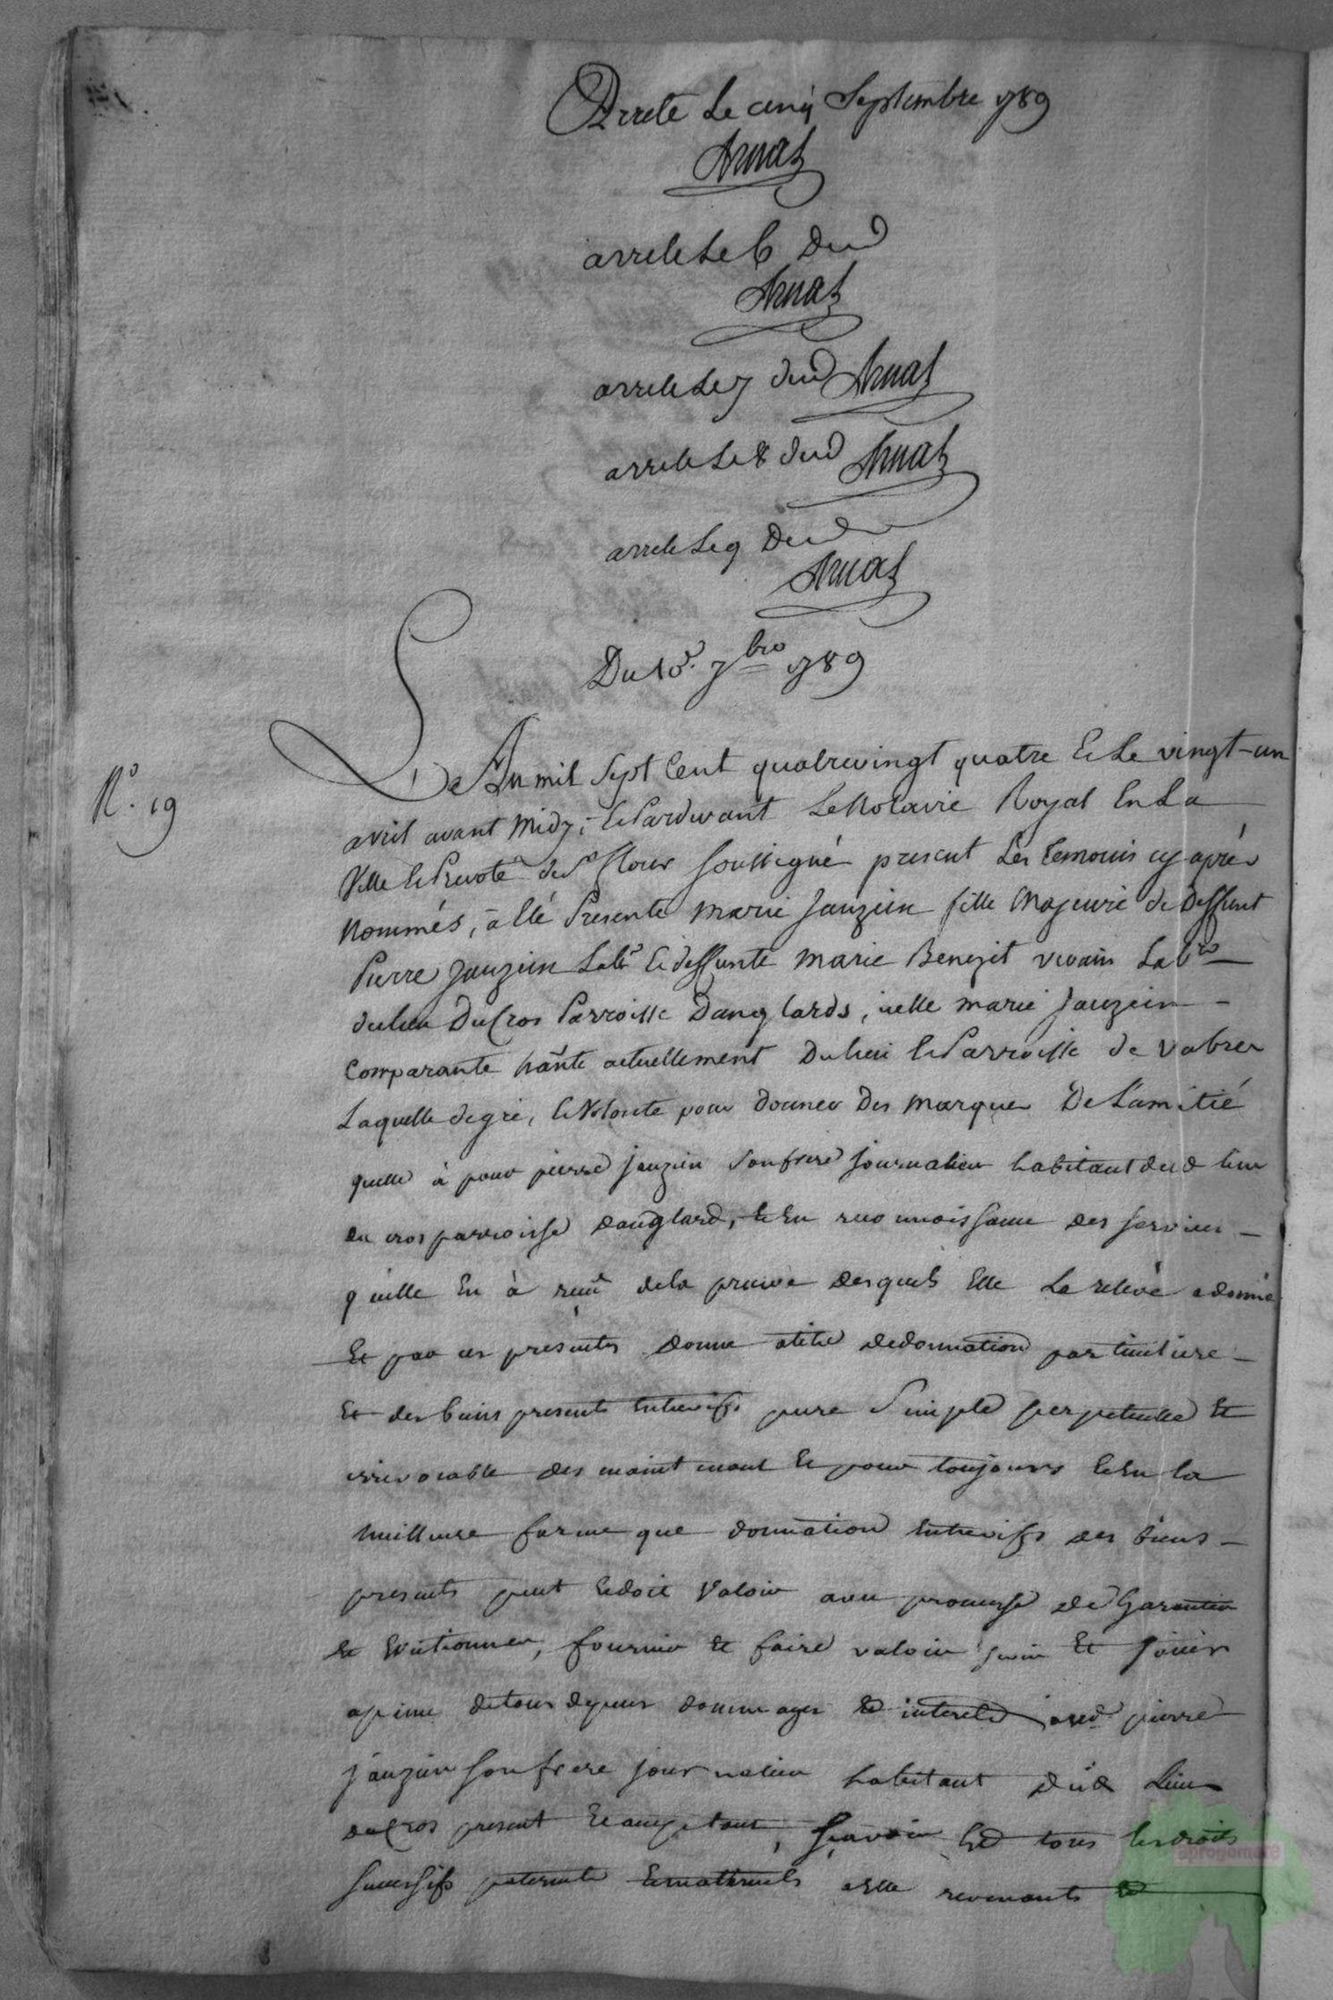 Arrete Le cinq Septembre 1789
Arnal
arrete Le 6 Dud
Arnal
arrete Le 7 dud Arnal
arrete Le 8 dud Arnal
arrete Le 9 Dud
Arnal
Du 10e. 7bre 1789
N°. 19
L'an mil Sept Cent quatrevingt quatre & Le vingt-un
avril avant Midy, & Pardevant Le Notaire Royal En La
Ville & Prevoté de St flour Soussigné present Les temoins cy après
Nommés, à Eté Presente Marie Jauzein fille Majeure de Deffunt
Pierre Jauzein Labr & deffunte Marie Benezit vivain Labrs
du lieu Du Cros Parroisse Danglards, icelle marie Jauzein
Comparante hânte actuellement Du lieu & Parroisse de Vabres
Laquelle de gré, & Volonte pour donner Des Marques De L'amitié
quelle à pour pierre jauzein Son frere journalier habitant dud lieu
du cros parroisse danglard, & En reconnoissance des services
quelle En à reçu de la preuve desquels Elle Le releve a donné
Et par ces presentes donne a titre de donnation particuliere
Et des biens presents Entrevifs pure Simple perpetuelle Et
irrevocable des maintenant & pour toujours & En la
meilleure forme que donnation Entrevifs des biens
presents peut & doit Valoir avec promesse de Garantir
Et Evictionner, fournir Et faire valoir jouir Et
a peine de tous depens dommages Et interets aud pierre
jauzein Son frere journalier habitant dud Lieu
du Cros present & acceptant, Sçavoir Est tous les droits
successifs paternels & maternels a Elle revenants Et
aprogemere